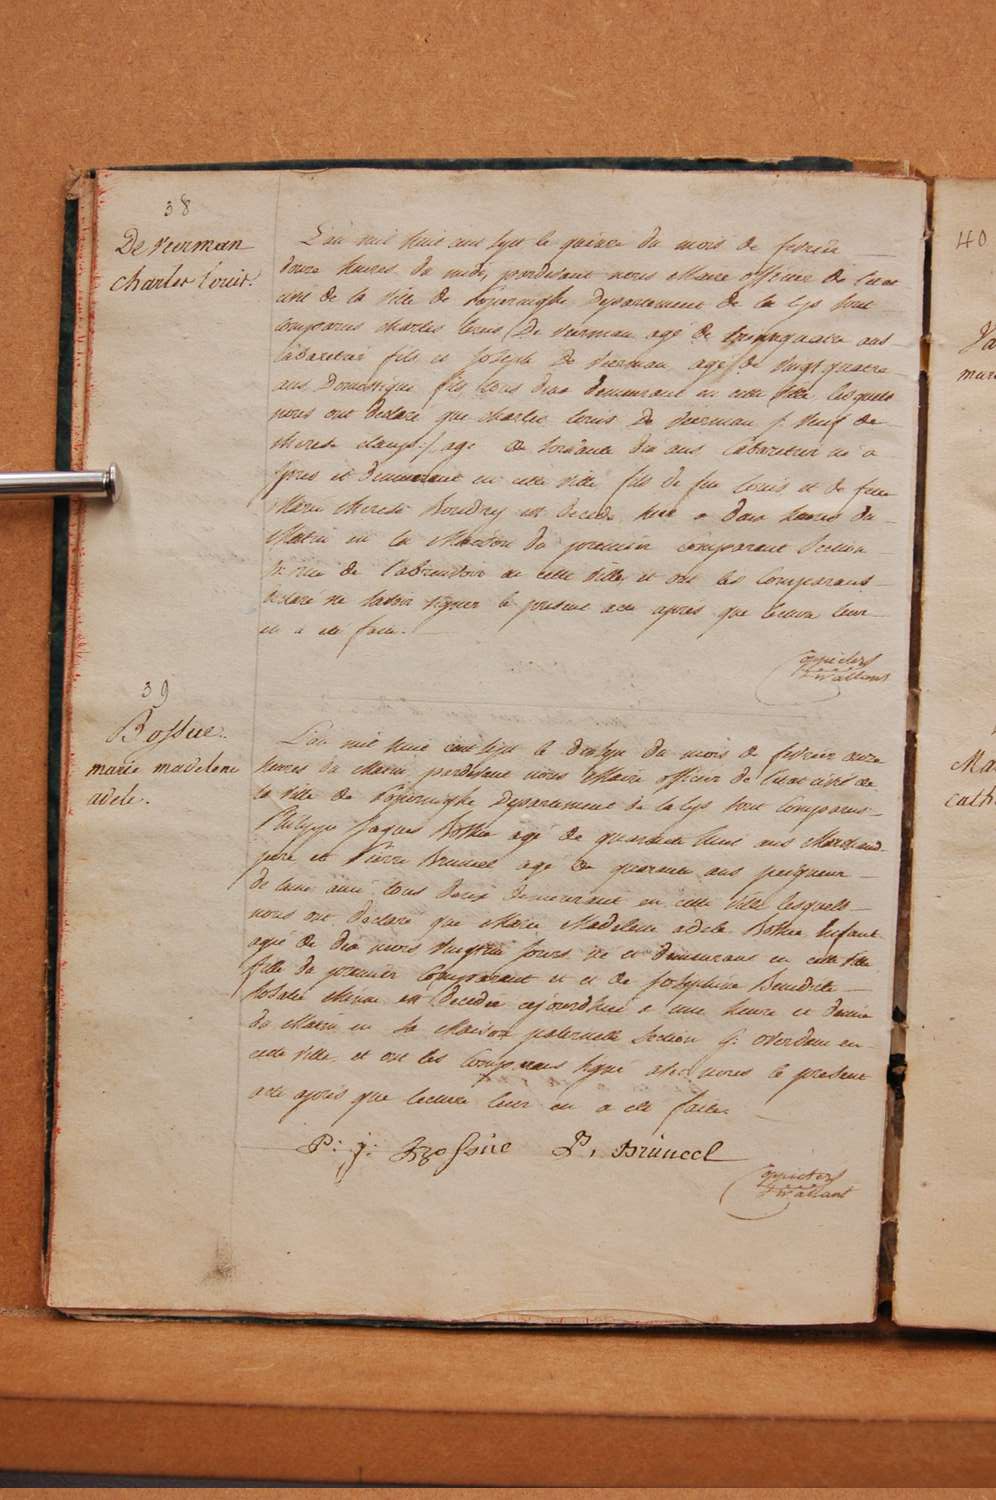 38
De veerman
charles louis.
L'an mil huit cent sept le quinze du mois de fevrier
douze heures du midi, pardevant nous Maire officier de l'etat
civil de la ville de Poperinghe Departement de la Lys sont
comparus charles louis De veerman agé de ans
cabaretier fils et Joseph De veerman agé de vingt quatre
ans Domestique fils tous deux demeurant en cette ville lesquels
nous ont declaré que charles louis De veerman veuf de
therese agé de soixante dix ans cabaretier né a
ypres et demeurant en cette ville fils de feu louis et de feue
Marie therese Boudry est decedé hier a deux heures du
Matin en la Maison du premier comparant Section
rue de l'abreuvoir en cette ville, et ont les comparans
declaré ne savoir signer le present acte après que lecture leur
en a eté faite.
39
Bossue.
marie madelene
adele.
L'an mil huit cent sept le dix sept du mois de fevrier onze
heures du Matin pardevant nous Maire officier de l'etat civil de
la ville de Poperinghe Departement de la Lys sont comparus
Philippe Jaques Bossue agé de quarante huit ans Marchand
pere et Pierre Bruneel agé de quarante ans peigneur
de laine ami tous deux demeurant en cette ville lesquels
nous ont declaré que Marie Madeleine adele Bossue Enfant
agé de dix mois jours né et demeurant en cette ville
fille du premier Comparant et de Josephine Benedicte
Rosalie est decedée cejourdhui a une heure et demie
du Matin en la Maison paternelle Section G: overdam en
cette ville et ont les Comparans signé avec nous le present
acte après que lecture leur en a eté faite.
P: j: Bossue P, Bruneel
40